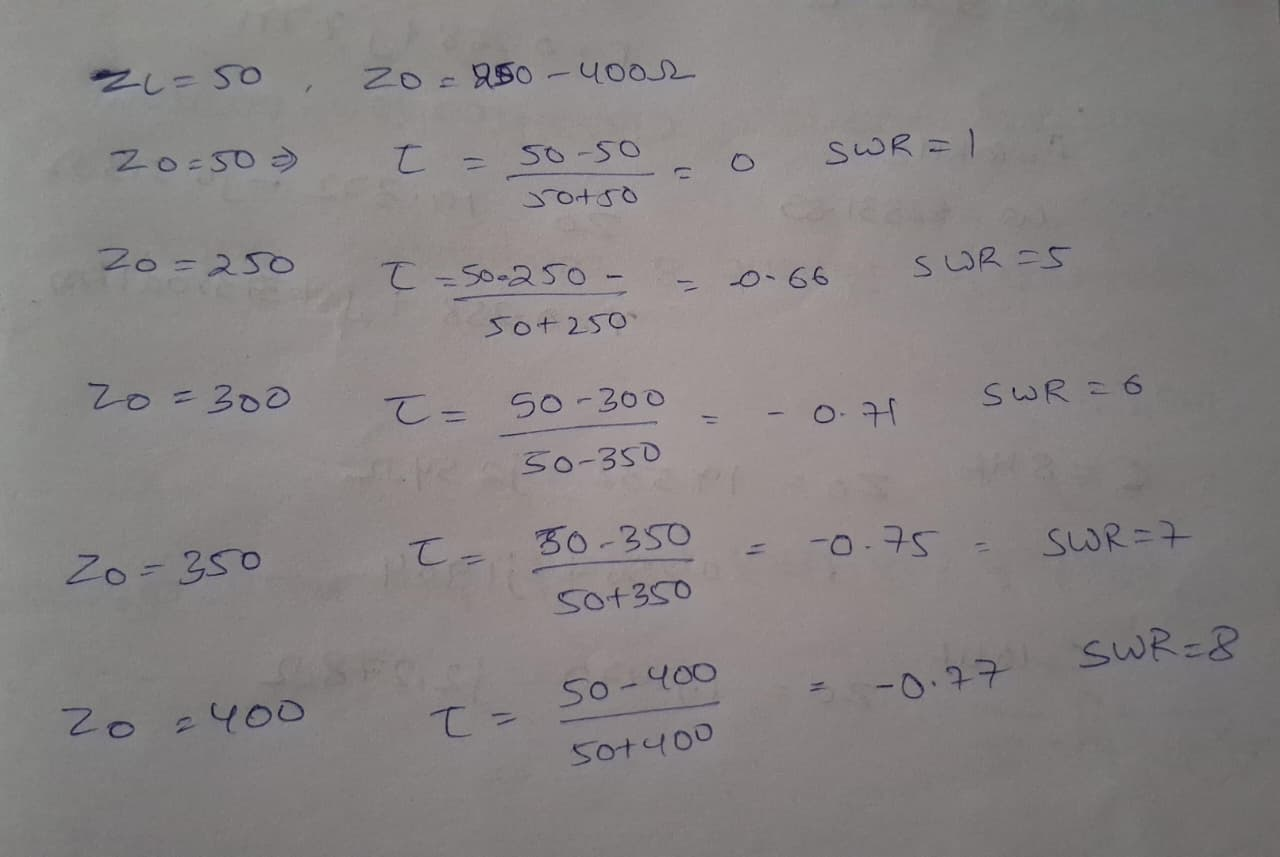 ZL = 50 , Z0 = 250 - 400Ω
Z0 = 50 ⇒ τ = 50-50 / 50+50 = 0 SWR = 1
Z0 = 250 τ = 50-250 - / 50+250 = -0.66 SWR = 5
Z0 = 300 τ = 50-300 / 50-350 = -0.71 SWR = 6
Z0 = 350 τ = 50-350 / 50+350 = -0.75 = SWR = 7
Z0 = 400 τ = 50-400 / 50+400 = -0.77 SWR = 8